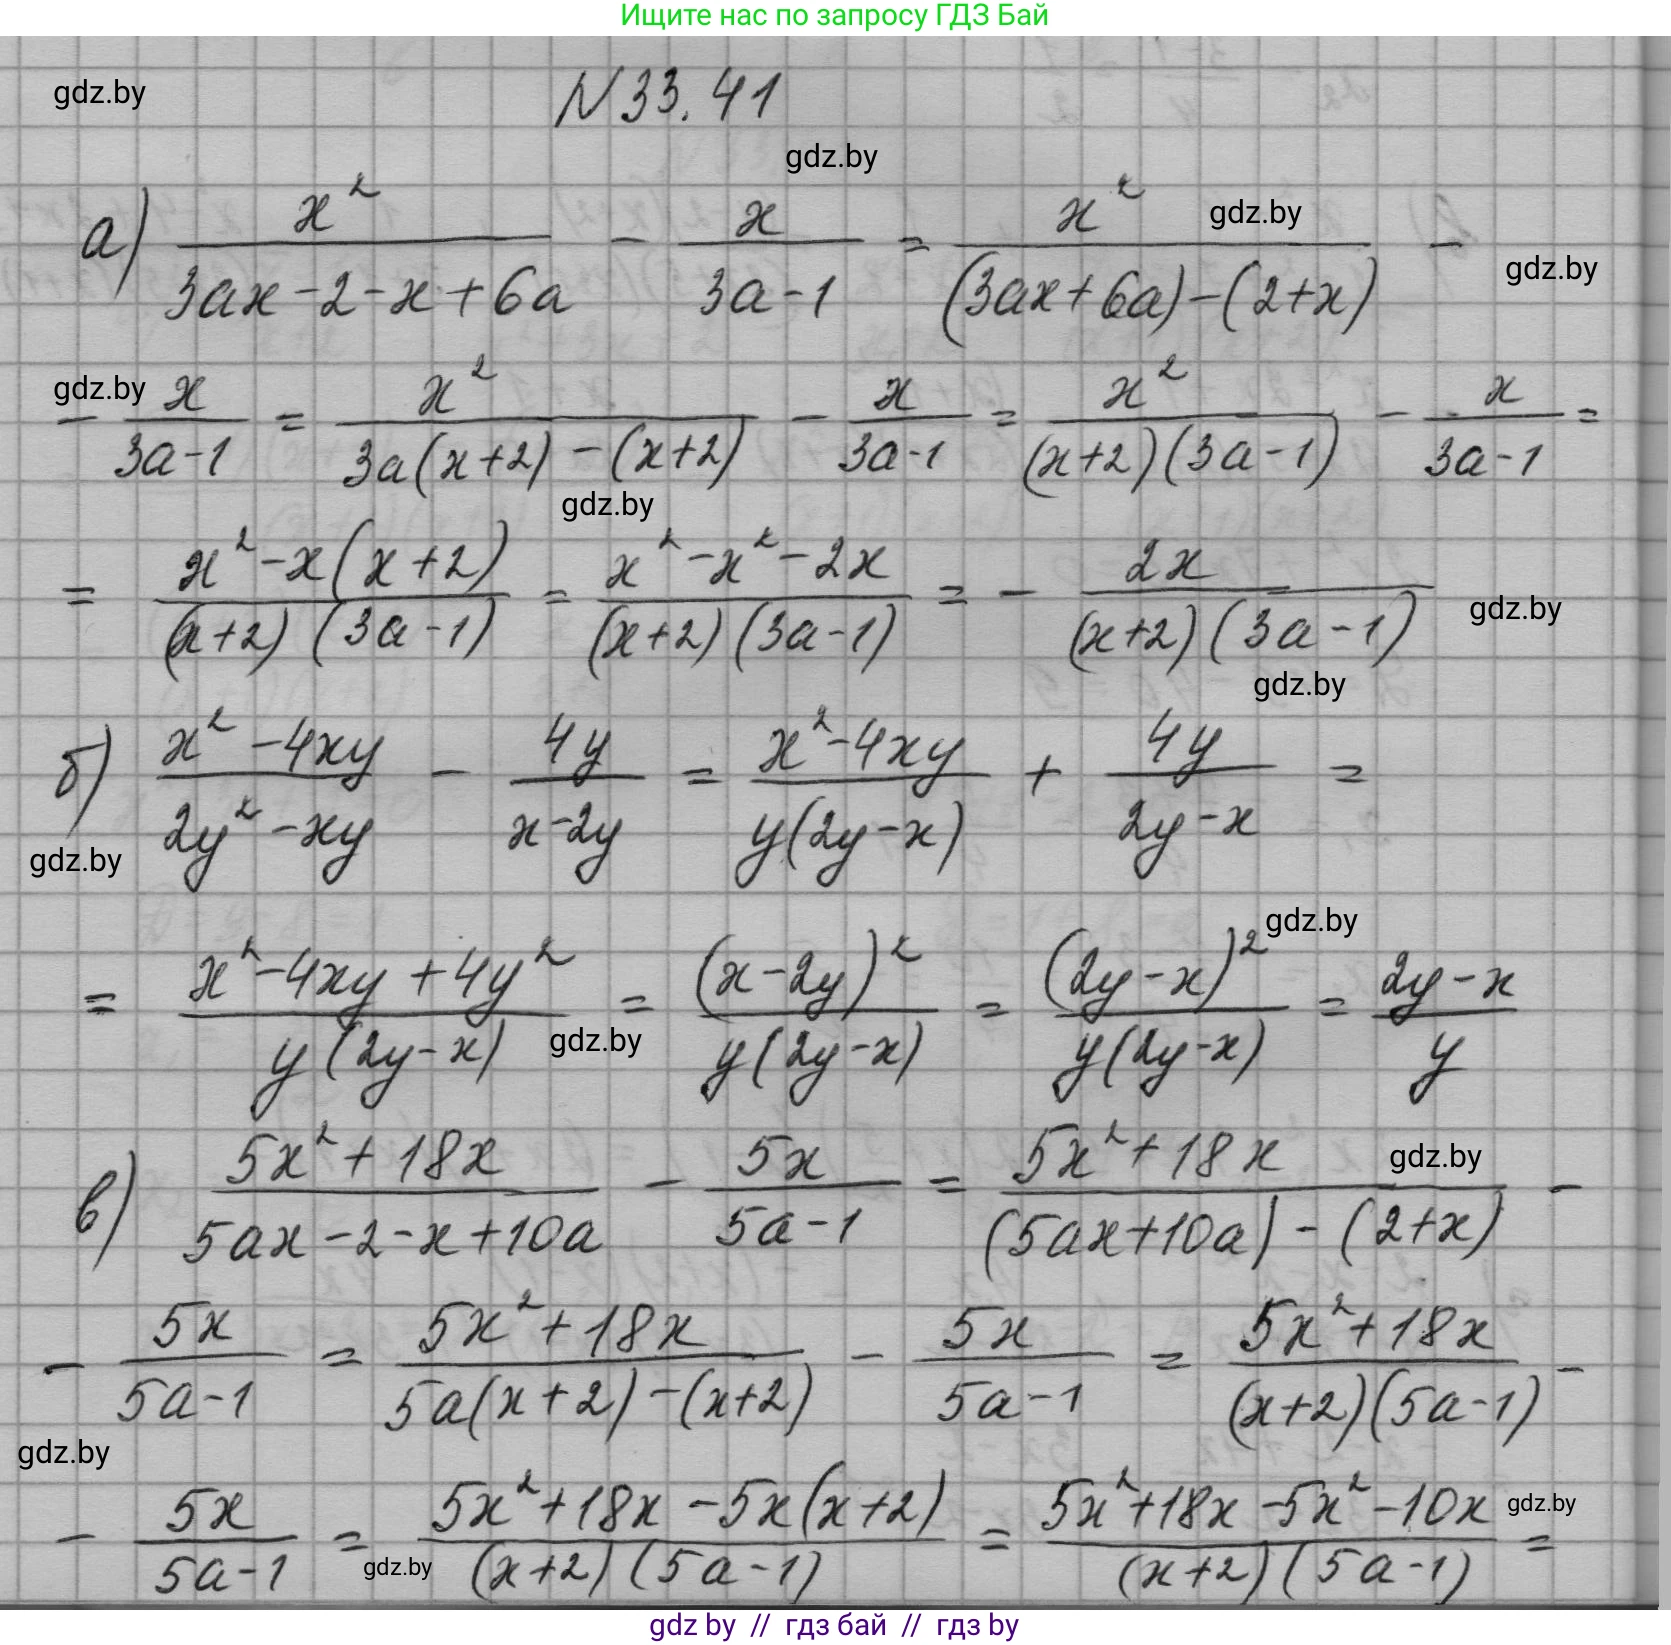 Ищите нас по запросу ГДЗ Бай
gdz.by
N33.41
gdz.by
а) x²/(3ax-2-x+6a) - x/(3a-1) = x²/((3ax+6a)-(2+x)) -
gdz.by
gdz.by
gdz.by
- x/(3a-1) = x²/(3a(x+2)-(x+2)) - x/(3a-1) = x²/((x+2)(3a-1)) - x/(3a-1) =
gdz.by
= (x²-x(x+2))/((x+2)(3a-1)) = (x²-x²-2x)/((x+2)(3a-1)) = - 2x/((x+2)(3a-1))
gdz.by
gdz.by
б) (x²-4xy)/(2y²-xy) - 4y/(x-2y) = (x²-4xy)/(y(2y-x)) + 4y/(2y-x) =
gdz.by
gdz.by
= (x²-4xy+4y²)/(y(2y-x)) = (x-2y)²/(y(2y-x)) = (2y-x)²/(y(2y-x)) = (2y-x)/y
gdz.by
в) (5x²+18x)/(5ax-2-x+10a) - 5x/(5a-1) = (5x²+18x)/((5ax+10a)-(2+x)) -
gdz.by
- 5x/(5a-1) = (5x²+18x)/(5a(x+2)-(x+2)) - 5x/(5a-1) = (5x²+18x)/((x+2)(5a-1)) -
gdz.by
- 5x/(5a-1) = (5x²+18x-5x(x+2))/((x+2)(5a-1)) = (5x²+18x-5x²-10x)/((x+2)(5a-1)) =
gdz.by
gdz.by
gdz by // гдз бай // гдз by